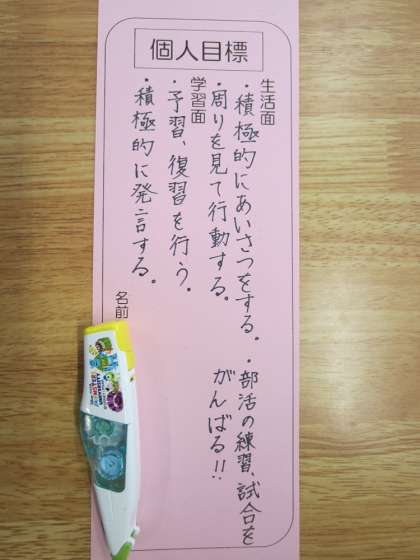 個人目標
生活面
・積極的にあいさつをする。
・周りを見て行動する。
・部活の練習、試合を
がんばる!!
学習面
・予習、復習を行う。
・積極的に発言する。
名前